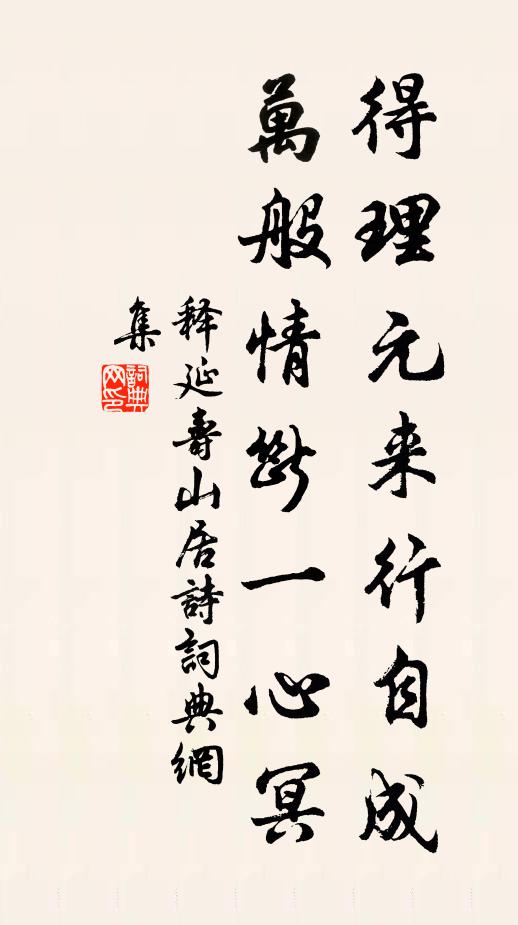 得理元来行自成
萬般情断一心冥
释延壽山居詩詞典網
集
詞典
网印